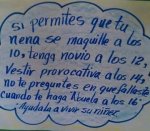 Si permites que tu
nena se maquille a los
10, tenga novio a los 12,
vestir provocativa a los 14,
no te preguntes en que fallaste
cuando te haga "Abuela a los 16"
Ayudala a vivir su niñez.